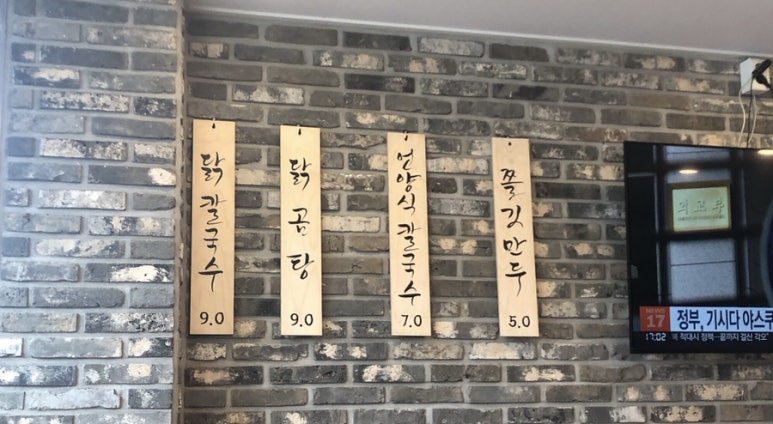 닭칼국수
9.0
닭곰탕
9.0
언양식칼국수
7.0
쫄깃만두
5.0
외교부
NEWS
17
정부, 기시다 야스쿠
17:02
적대시 정책…끝까지 결산 각오"